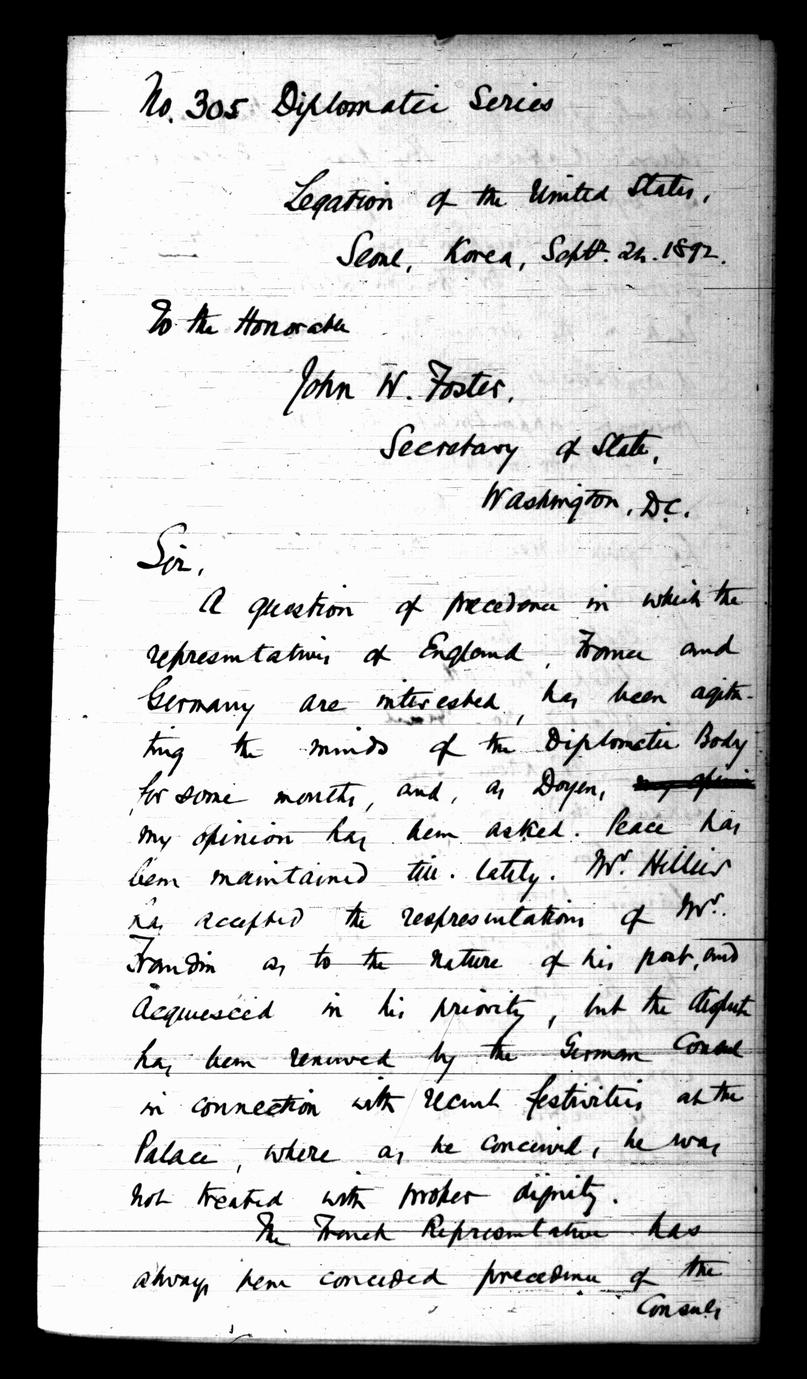 No. 305 Diplomatic Series
Legation of the United States,
Seoul, Korea, Sept. 24. 1892.
To the Honorable
John W. Foster,
Secretary of State,
Washington, D.C.
Sir,
A question of precedence in which the
representatives of England, France and
Germany are interested, has been agita-
ting the minds of the Diplomatic Body
for some months, and, as Doyen, my opinion
my opinion has been asked. Peace has
been maintained till lately. Mr. Hillier
has accepted the respresentations of Mr.
Frandin as to the nature of his post, and
acquiesced in his priority, but the dispute
has been renewed by the German Consul
in connection with recent festivities at the
Palace, where as he conceived, he was
not treated with proper dignity.
The French Representative has
always been conceded precedence of the
Consuls